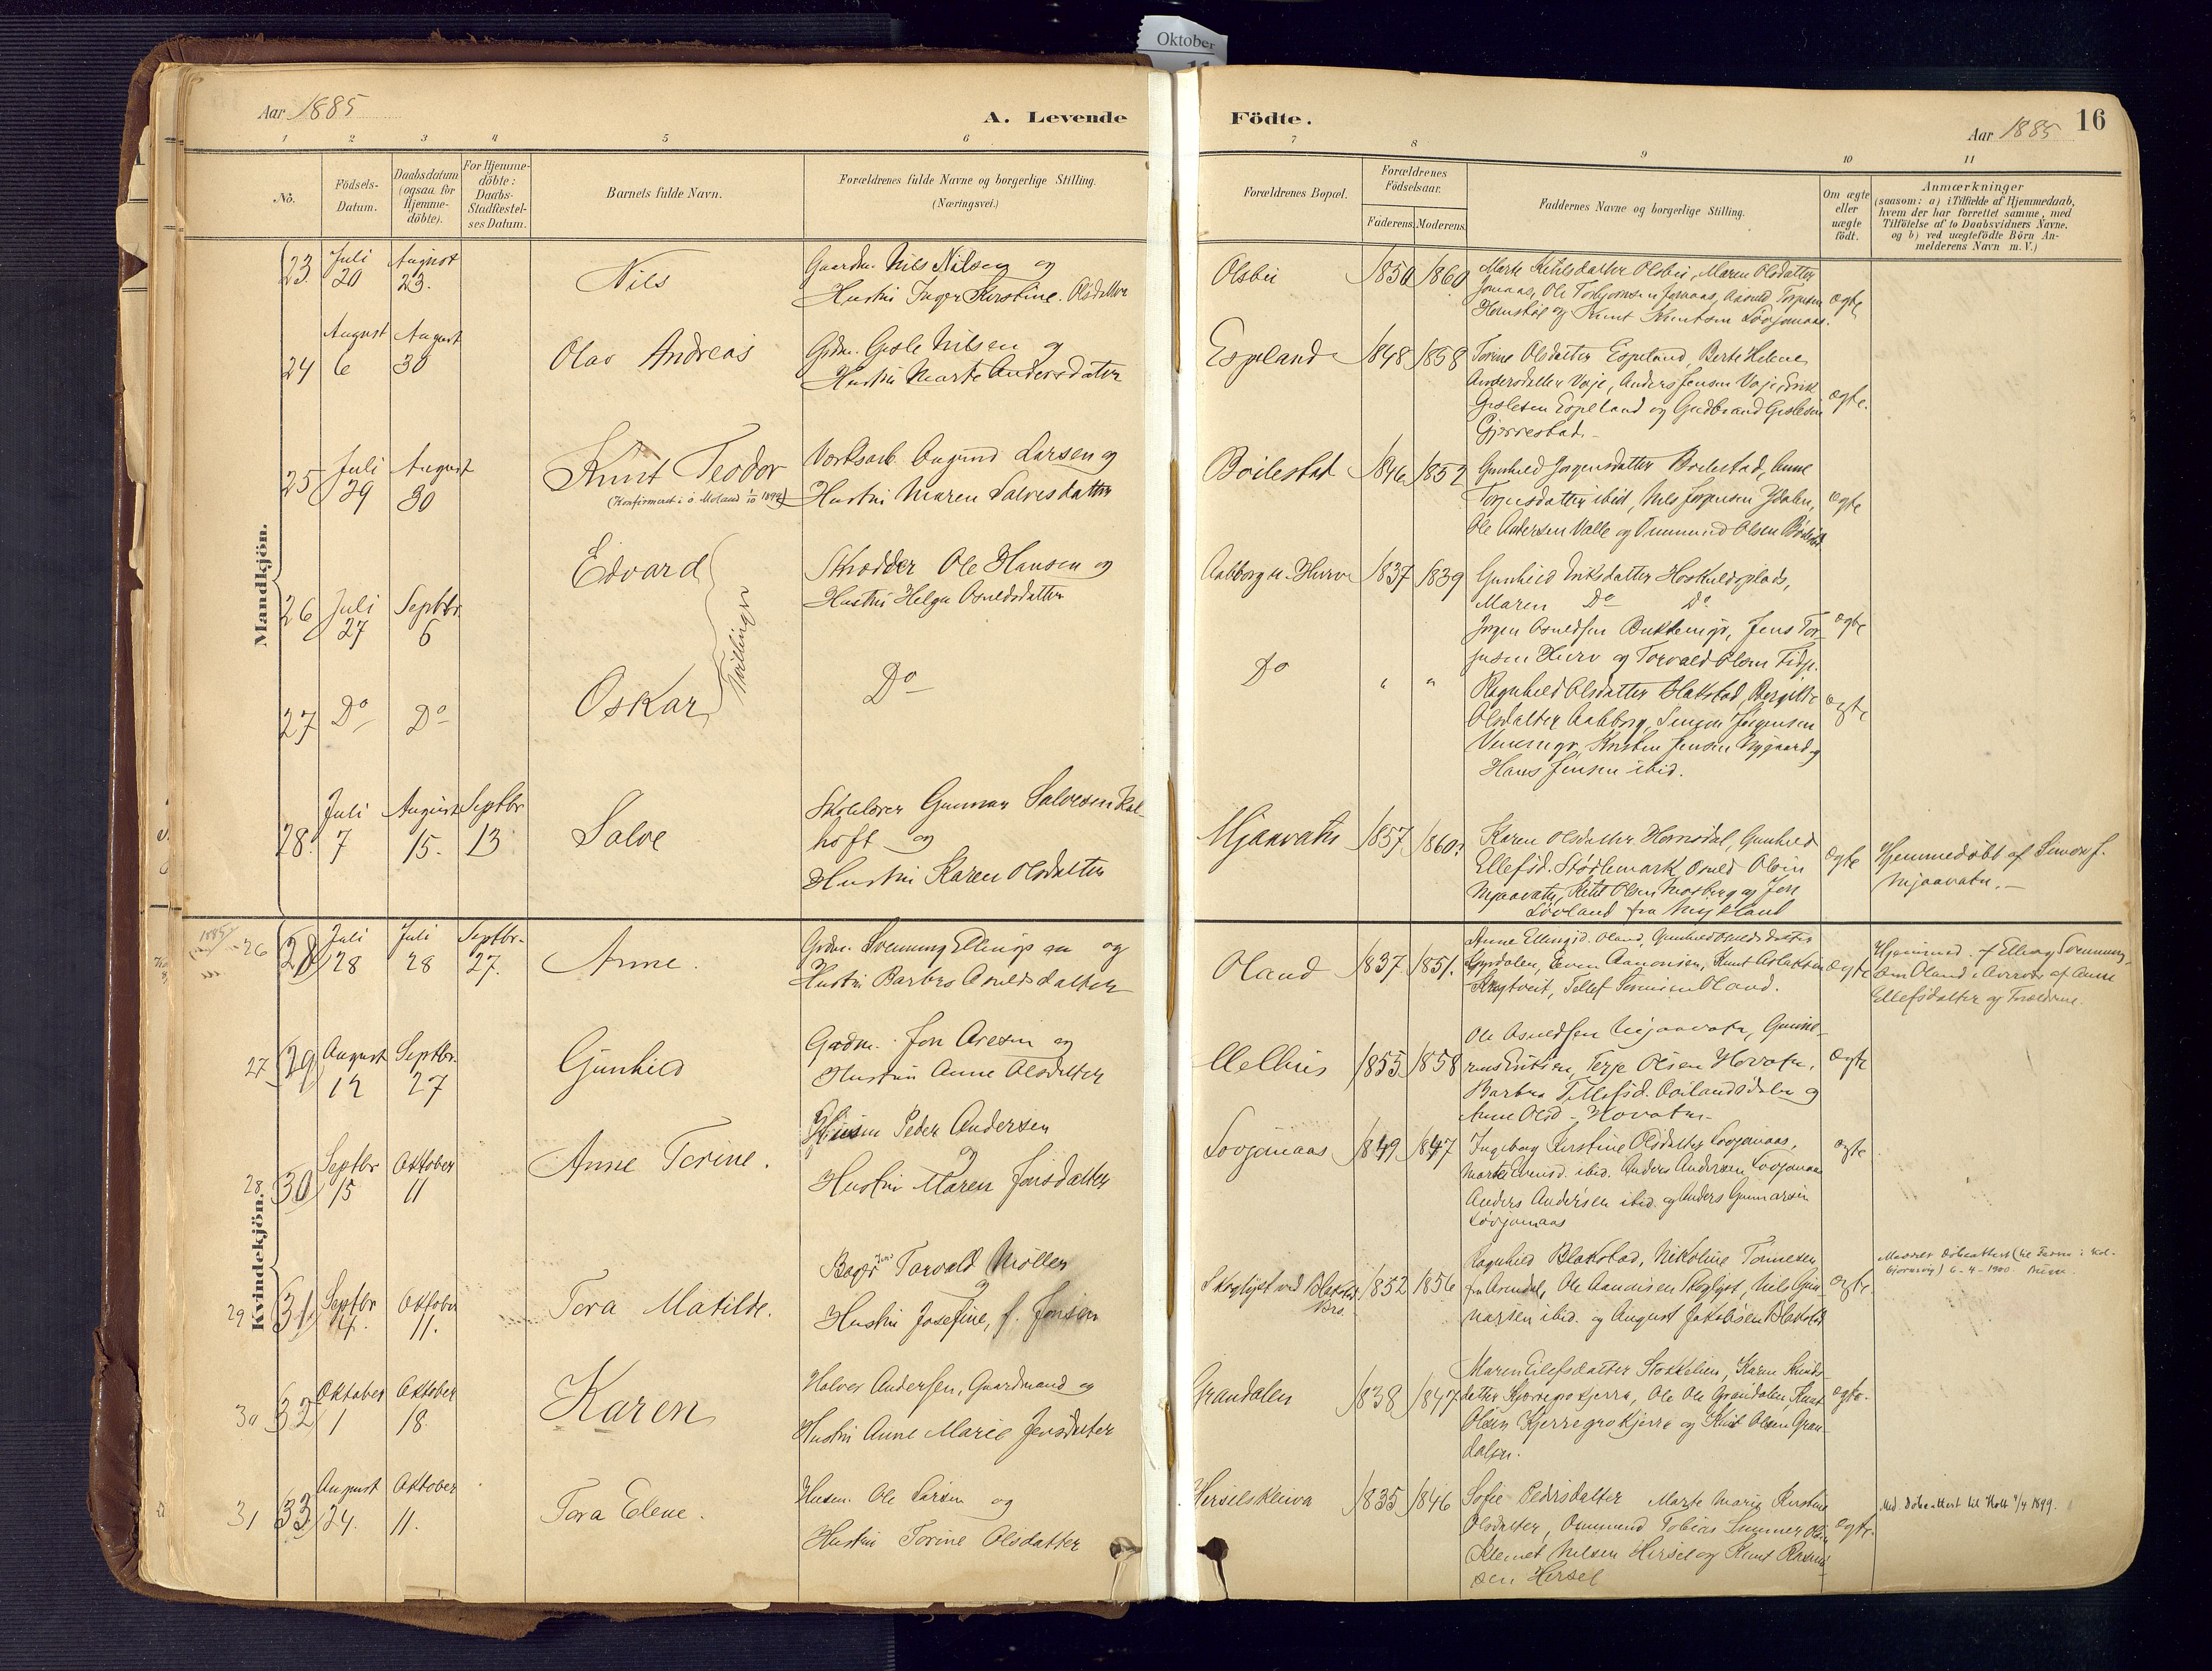 Oktober
11
Aar 1885
A. Levende
Födte.
Aar 1885
16
1 2 3 4 5 6 7 8 9 10 11
No.
Födsels-
Datum.
Daabsdatum
(ogsaa for
Hjemme-
döbte).
For Hjemme-
döbte:
Daabs-
Stadfæstel-
ses Datum.
Barnets fulde Navn.
Forældrenes fulde Navne og borgerlige Stilling.
(Næringsvei.)
Forældrenes Bopæl.
Forældrenes
Födselsaar.
Faderens. Moderens.
Faddernes Navne og borgerlige Stilling.
Om ægte
eller
uægte
födt.
Anmærkninger
(saasom: a) i Tilfælde af Hjemmedaab,
hvem der har forrettet samme, med
Tilföielse af to Daabsvidners Navne,
og b) ved uægtefödte Börn An-
melderens Navn m. V.)
Mandkjön.
23. Juli 20 August 23.
Nils
Gaardm. Nils Nilsen og
Hustru Inger Kirstine Olsdatter
Olsbu 1850 1860
Marte Ketilsdatter Olsbu, Maren Olsdatter
Jomaas, Ole Torbjørnsen Jomaas,
og Knut Knutsen Lövjomaas.
ægte
24 August 6 August 30
Olav Andreas
Grdm. Gisle Nilsen og
Hustru Marte Andersdatter
Espeland 1848 1858
Torine Olsdatter Espeland, Berte Helene
Andersdatter Vaje, Anders Jensen Vaje,
Gislesen Espeland og Gudbrand Gislesen
Gjerrestad.
ægte.
25 Juli 29 August 30
Knut Teodor
(Konfirmert i ö. Moland 1/10 1899)
Verksarb. Aagund Larsen og
Hustru Maren Salvesdatter
Böilestad 1846 1852
Gunhild Jörgensdatter Böilestad, Anne
Torjusdatter ibid, Nils Jörgensen Ydalen,
Ole Andersen Valle og Ommund Olsen Böilestad
ægte
26 Juli 27 Septbr. 6
Edvard
Tvillinger
Skrædder Ole Hansen og
Hustru Helga Osuldsdatter
Aabborg u. Hurv 1837 1839
Gunhild Eriksdatter Hoskuldsplads,
Maren Do Do
Jörgen Osuldsen Bukkemyr, Jens Tor-
jusen Hurv og Torvald Olsen
ægte
27 Do Do
Oskar
Do
Do " "
Ragnhild Olsdatter Blakstad, Bergitte
Olsdatter Aabborg, Simon Jörgensen
Kristen Jensen Nygaard og
Hans Jensen ibid.
ægte
28. Juli 7 August 15. Septbr 13
Salve
Skolelærer Gunnar Salvesen Kal-
hoft og
Hustru Karen Olsdatter
Mjaavatn 1857 1860?
Karen Olsdatter Hornsdal, Gunhild
Ellefsd. Stöitlemark, Osuld Olsen
Mjaavatn, Ketil Olsen Mosberg og Jens
Lövland fra Mykland
ægte
Hjemmedöbt af Simon J.
Mjaavatn. —
Kvindekjön.
1885
26 28 Juli 28 Juli 28 Septbr. 27.
Anne.
Grdm. Svenning Ellingsen og
Hustru Barbro Osuldsdatter
Oland 1837. 1851.
Anne Ellingsd. Oland, Gunhild Osuldsdatter
Even Aanonsen, Knut Aslaksen
Krugtveit, Tellef Oland.
ægte
Hjemmed. af Elling Svennung-
sen Oland i Overvær af Anne
Ellefsdatter og Forældrene.
27 29 August 12 Septbr. 27
Gunhild
Grdm. Jon Aresen og
Hustru Anne Olsdatter
Melhus 1855 1858
Ole Osuldsen Mjaavatn, Gunne-
rius Eriksen, Terje Olsen Hovatn,
Barbra Tellefsd. og
Anne Olsd. Hovatn
ægte
28 30 Septbr 15 Oktober 11
Anne Torine.
Husm Peder Andersen
og
Hustru Maren Jensdatter
Lovjomaas 1849 1847
Ingeborg Kirstine Olsdatter Lovjomaas,
Marte Evensd. ibid. Anders Andersen Lovjomaas
Anders Andersen ibid. og Anders Gunnarsen
Lövjomaas
ægte
29 31 Septbr 4. Oktober 11.
Tora Matilde.
Bager Torvald Möller
og
Hustru Josefine, f. Jensen
Skoglyst ved Blakstad Bro. 1852 1856
Ragnhild Blakstad, Nikoline Tönnesen
fra Arendal, Ole Aanonsen Skoglyst, Nils Gun-
narsen ibid. og August Jakobsen Blakstad
ægte
Meddelt döbeattest (til Fadren i Kol-
björnsvig) 6-4-1900.
30 32 Oktober 1 Oktober 18
Karen
Halvor Andersen, Gaardmand og
Hustru Anne Marie Jensdatter
Grandalen 1838 1847
Maren Eilefsdatter Stokkelien, Karen Knuds-
datter Kjerregrokjerra, Ole Ols. Grandalen, Knut
Olsen Kjerregrokjerra og Knut Olsen Gran-
dalen.
ægte.
31 33 August 24. Oktober 11.
Tora Elene.
Husm. Ole Larsen og
Hustru Torine Olsdatter
Herselskleiva 1835 1846
Sofie Pedersdatter Marte Marie Kirstine
Olsdatter, Ommund Tobias
Klemet Nilsen Hersel og Knut
sen Hersel
ægte.
Med. döbeattest til Holt 9/4 1899.